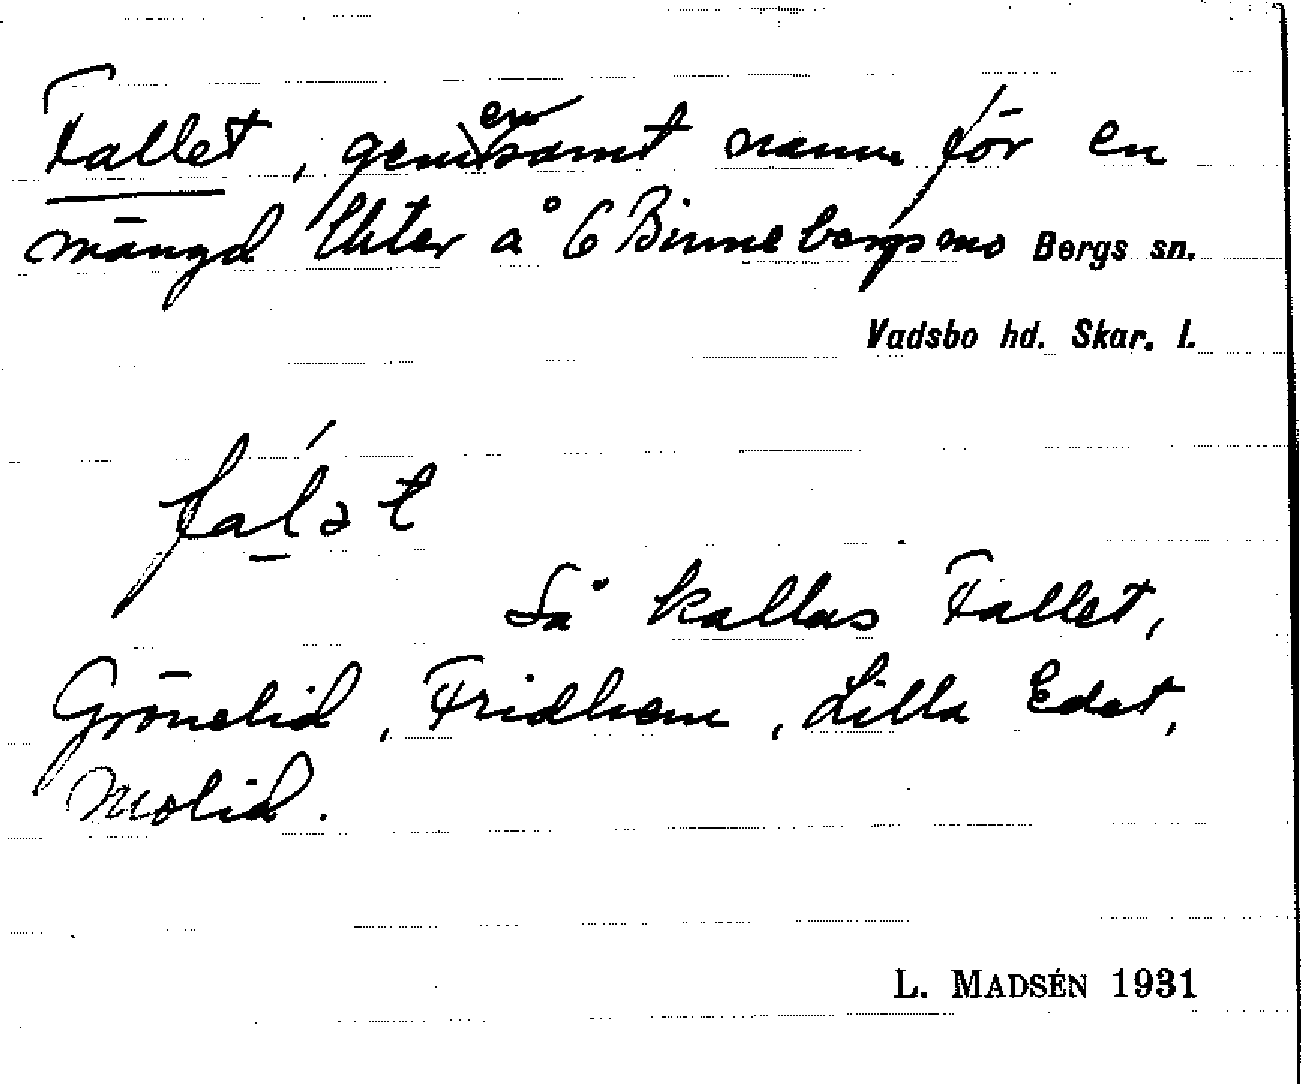 Fallet, gemensamt namn för en
mängd lhter å 6 Binnebergsmo Bergs sn.
Vadsbo hd. Skar. l.
fa̱lət
Så kallas Fallet,
Grönelid, Fridhem, Lilla Edet,
Molid.
L. MADSÉN 1931